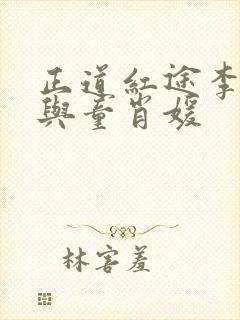 正道紅途李
與童肖媛
林害羞